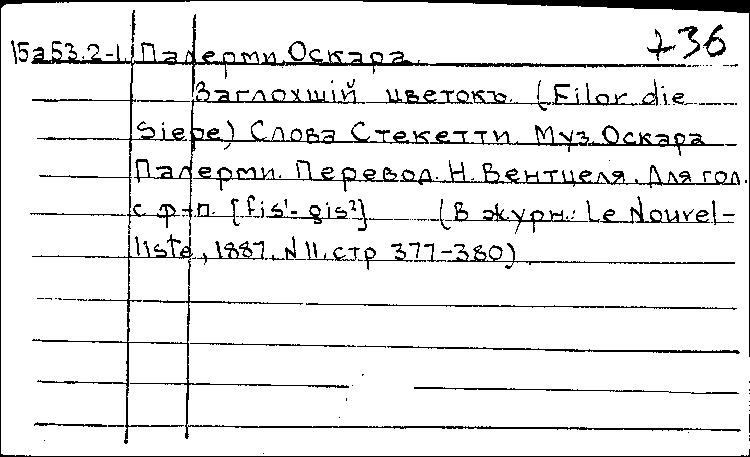 15а53.2-1. Палерми, Оскара. +36
Заглохшій цветокъ. (Filor die
Siepe) Слова Стекетти. Муз. Оскара
Палерми. Перевод. Н. Вентцеля. Для гол.
с ф-п. [fis¹- gis²] (В журн.: Le Nouvel-
liste, 1887. N 11. стр 377-380)